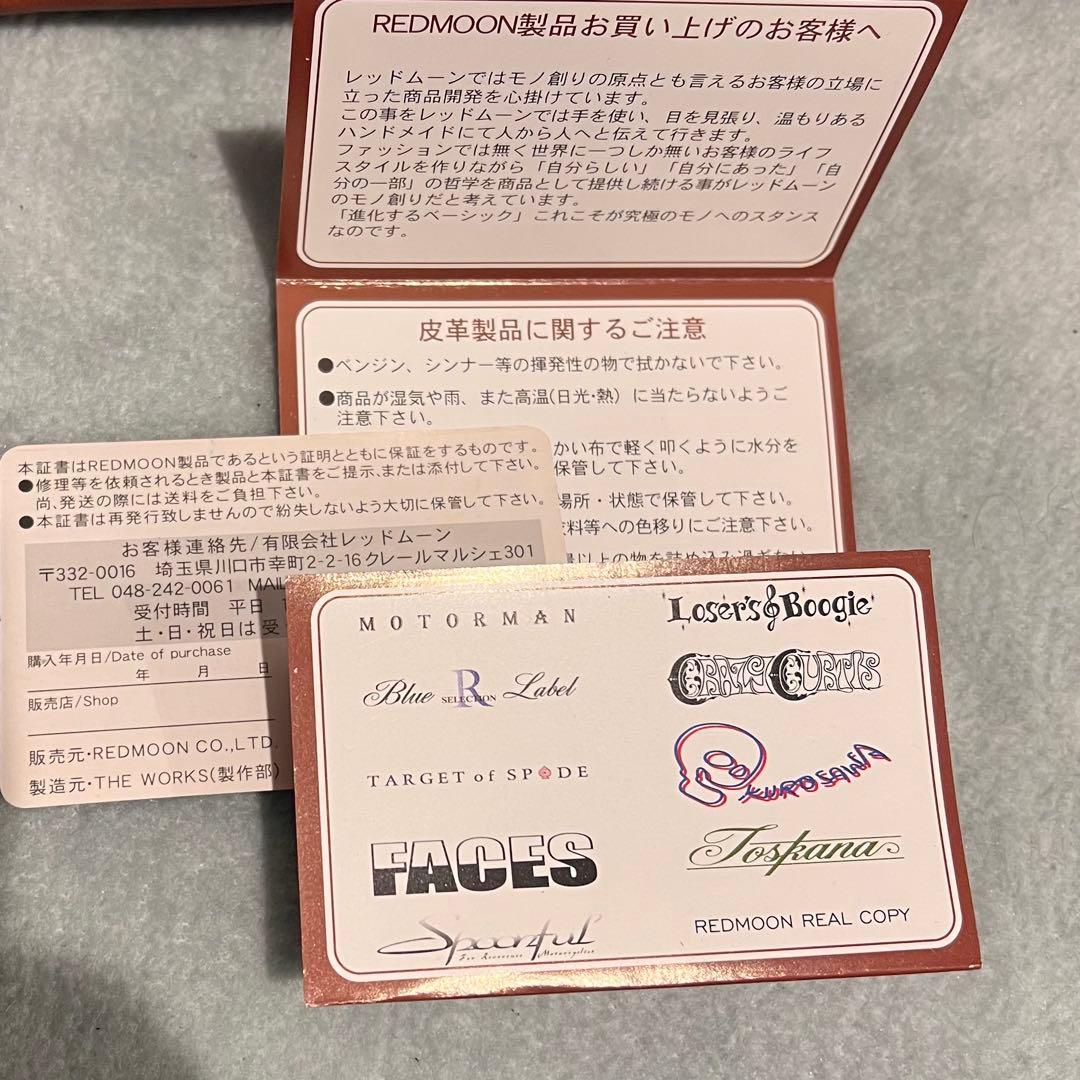 REDMOON製品お買い上げのお客様へ
レッドムーンではモノ創りの原点とも言えるお客様の立場に
立った商品開発を心掛けています。
この事をレッドムーンでは手を使い、目を見張り、温もりある
ハンドメイドにて人から人へと伝えて行きます。
ファッションでは無く世界に一つしか無いお客様のライフ
スタイルを作りながら「自分らしい」「自分にあった」「自
分の一部」の哲学を商品として提供し続ける事がレッドムーン
のモノ創りだと考えています。
「進化するベーシック」これこそが究極のモノへのスタンス
なのです。
皮革製品に関するご注意
●ベンジン、シンナー等の揮発性の物で拭かないで下さい。
●商品が湿気や雨、また高温(日光・熱)に当たらないようご
注意下さい。
かい布で軽く叩くように水分を
保管して下さい。
場所・状態で保管して下さい。
料等への色移りにご注意下さい。
以上の物を詰め込み過ぎない
本証書はREDMOON製品であるという証明とともに保証をするものです。
●修理等を依頼されるとき製品と本証書をご提示、または添付して下さい。
尚、発送の際には送料をご負担下さい。
●本証書は再発行致しませんので紛失しないよう大切に保管して下さい。
お客様連絡先/有限会社レッドムーン
〒332-0016 埼玉県川口市幸町2-2-16クレールマルシェ301
TEL 048-242-0061 MAIL
受付時間 平日
土・日・祝日は受
購入年月日/Date of purchase
年 月 日
販売店/Shop
販売元・REDMOON CO.,LTD.
製造元・THE WORKS(製作部)
MOTORMAN
Loser's Boogie
Blue R SELECTION Label
CRAZY CURTIS
TARGET of SPADE
KUROSAWA
FACES
Toskana
Spoonful
For Reverence Motorcyclist
REDMOON REAL COPY